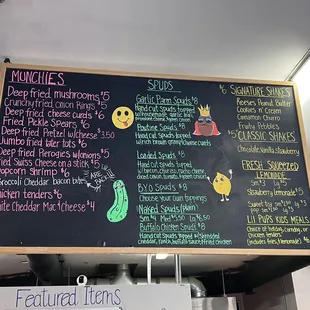 MUNCHIES
Deep fried mushrooms $5
Crunchy fried onion Rings $5
Deep fried cheese curds $6
Fried Pickle Spears $6
Deep fried Pretzel w/cheese $3.50
Jumbo fried tater tots $6
Deep fried Pierogies w/onions $5
Fried Swiss Cheese on a stick $5
Popcorn shrimp $6
Broccoli Cheddar bacon bites
Chicken tenders $6
White Cheddar Mac & Cheese $4
SPUDS
Garlic Parm Spuds $8
Hand cut Spuds topped
w/
Poutine Spuds $8
Hand cut Spuds topped
w/ brown gravy & cheese curds
Loaded Spuds $8
Hand cut Spuds topped
w/ bacon, cheese,
BYO Spuds $8
Choose your own toppings
Naked Spuds
Sm $4 Med $5.50 Lg $6.50
Buffalo Chicken Spuds $8
Hand cut Spuds topped w/ shredded
cheddar, ranch, buffalo sauce & fried chicken
$6 SIGNATURE SHAKES
Reeses Peanut Butter
Cookies n' Cream
Cinnamon Churro
Fruity Pebbles
$5 CLASSIC SHAKES
Chocolate Vanilla Strawberry
FRESH SQUEEZED
LEMONADE
Sm $3 Lg $5
Strawberry Lemonade $5
Sweet tea Sm $2 Lg $3
pop Sm $2 Lg $3
LIL PUPS KIDS MEALS
Choice of hotdog, corndog, or
chicken tenders.
(includes fries, lemonade)
Featured Items